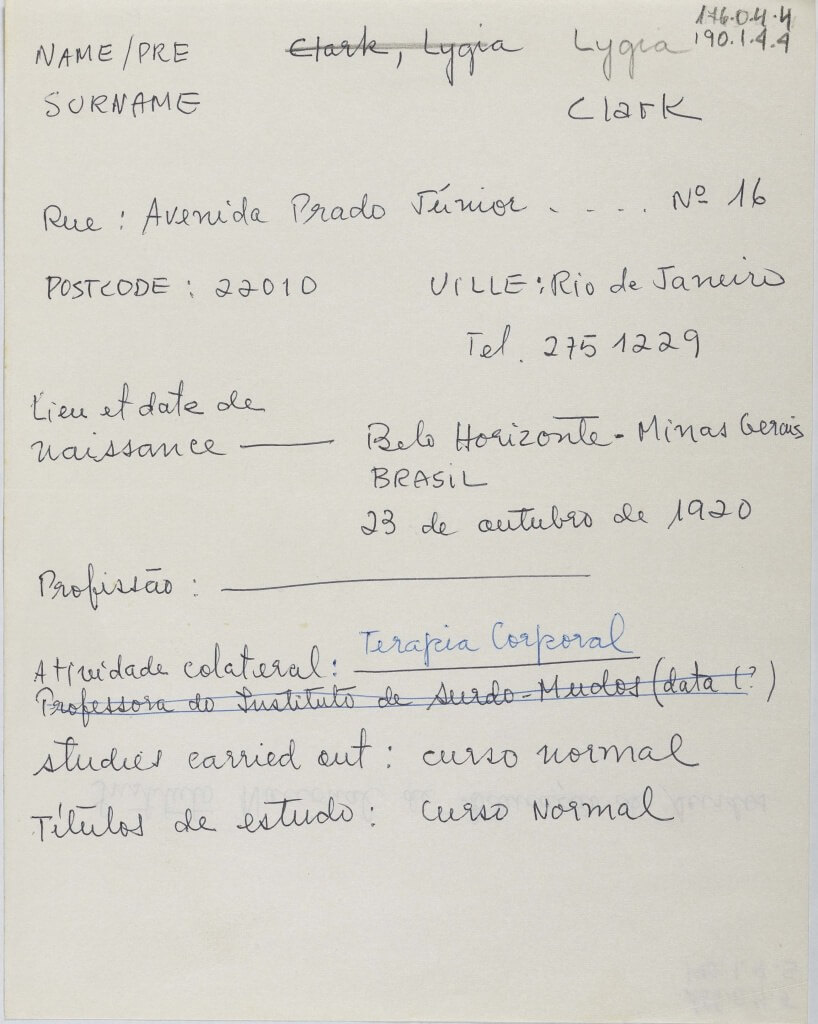 176.04.4
190.1.4.4
NAME/PRE Clark, Lygia Lygia
SURNAME Clark
Rue : Avenida Prado Júnior . . . . . Nº 16
POSTCODE : 22010 VILLE : Rio de Janeiro
Tel. 275 1229
Lieu et date de
naissance —— Belo Horizonte - Minas Gerais
BRASIL
23 de outubro de 1920
Profissão : ——
Atividade colateral : Terapia Corporal
Professora do Instituto de Surdo-Mudos (data (?)
studies carried out : curso normal
Títulos de estudo : Curso Normal